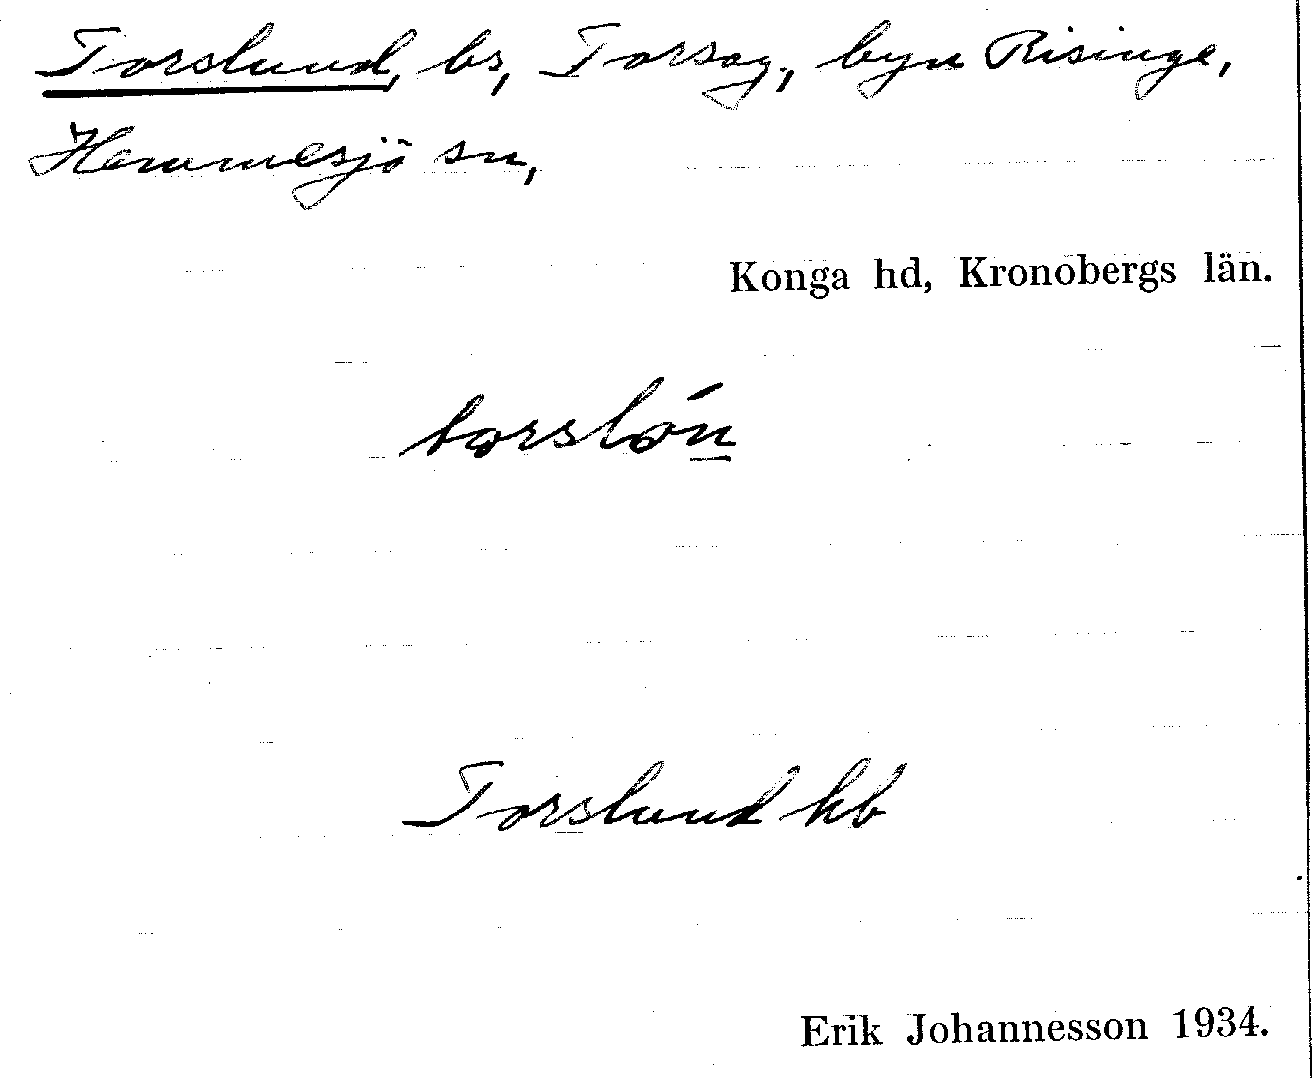 Torslund, bs, Torsag, byn Risinge,
Hemmesjö sn,
Konga hd, Kronobergs län.
torslǿn
Torslund kb
Erik Johannesson 1934.